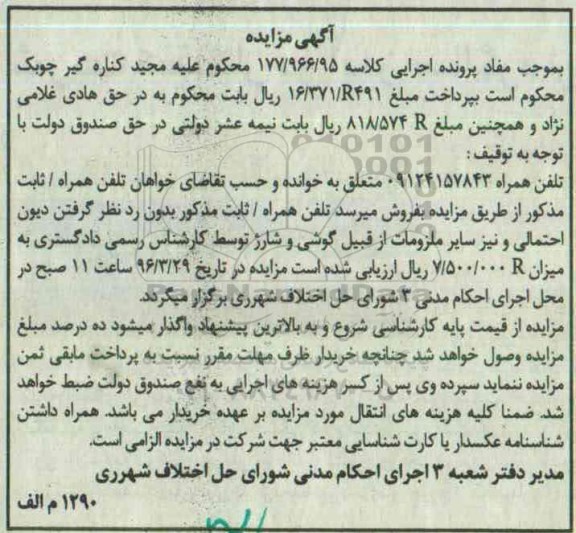 آگهی مزایده
بموجب مفاد پرونده اجرایی کلاسه ۱۷۷/۹۶۶/۹۵ محکوم علیه مجید کناره گیر چوبک
محکوم است بپرداخت مبلغ ۱۶/۳۷۱/R۴۹۱ ریال بابت محکوم به در حق هادی غلامی
نژاد و همچنین مبلغ ۸۱۸/۵۷۴ R ریال بابت نیمه عشر دولتی در حق صندوق دولت با
توجه به توقیف:
تلفن همراه ۰۹۱۲۴۱۵۷۸۴۳ متعلق به خوانده و حسب تقاضای خواهان تلفن همراه / ثابت
مذکور از طریق مزایده بفروش میرسد تلفن همراه / ثابت مذکور بدون رد نظر گرفتن دیون
احتمالی و نیز سایر ملزومات از قبیل گوشی و شارژ توسط کارشناس رسمی دادگستری به
میزان R ۷/۵۰۰/۰۰۰ ریال ارزیابی شده است مزایده در تاریخ ۹۶/۳/۲۹ ساعت ۱۱ صبح در
محل اجرای احکام مدنی ۳ شورای حل اختلاف شهرری برگزار میگردد.
مزایده از قیمت پایه کارشناسی شروع و به بالاترین پیشنهاد واگذار میشود ده درصد مبلغ
مزایده وصول خواهد شد چنانچه خریدار ظرف مهلت مقرر نسبت به پرداخت مابقی ثمن
مزایده ننماید سپرده وی پس از کسر هزینه های اجرایی به نفع صندوق دولت ضبط خواهد
شد. ضمنا کلیه هزینه های انتقال مورد مزایده بر عهده خریدار می باشد. همراه داشتن
شناسنامه عکسدار یا کارت شناسایی معتبر جهت شرکت در مزایده الزامی است.
مدیر دفتر شعبه ۳ اجرای احکام مدنی شورای حل اختلاف شهرری
۱۲۹۰ م الف